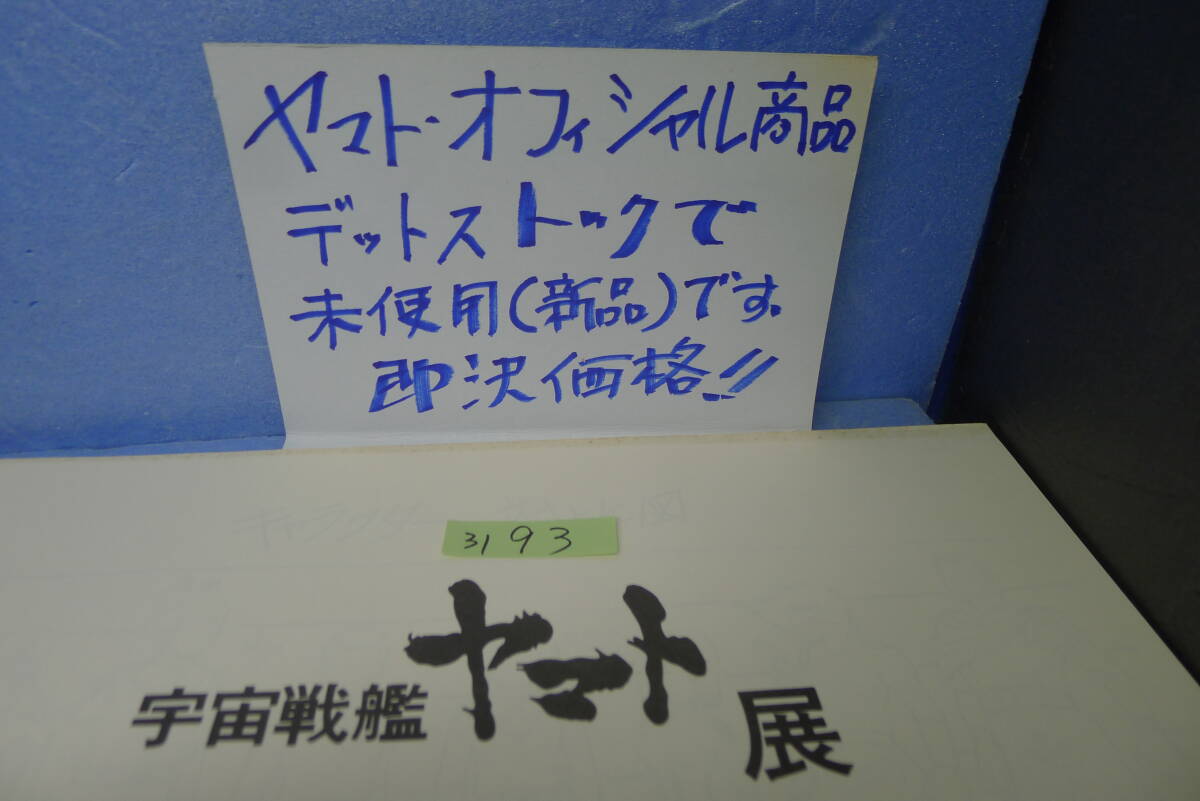 ヤマト・オフィシャル商品
デットストックで
未使用(新品)です。
即決価格!!
3193
宇宙戦艦ヤマト展